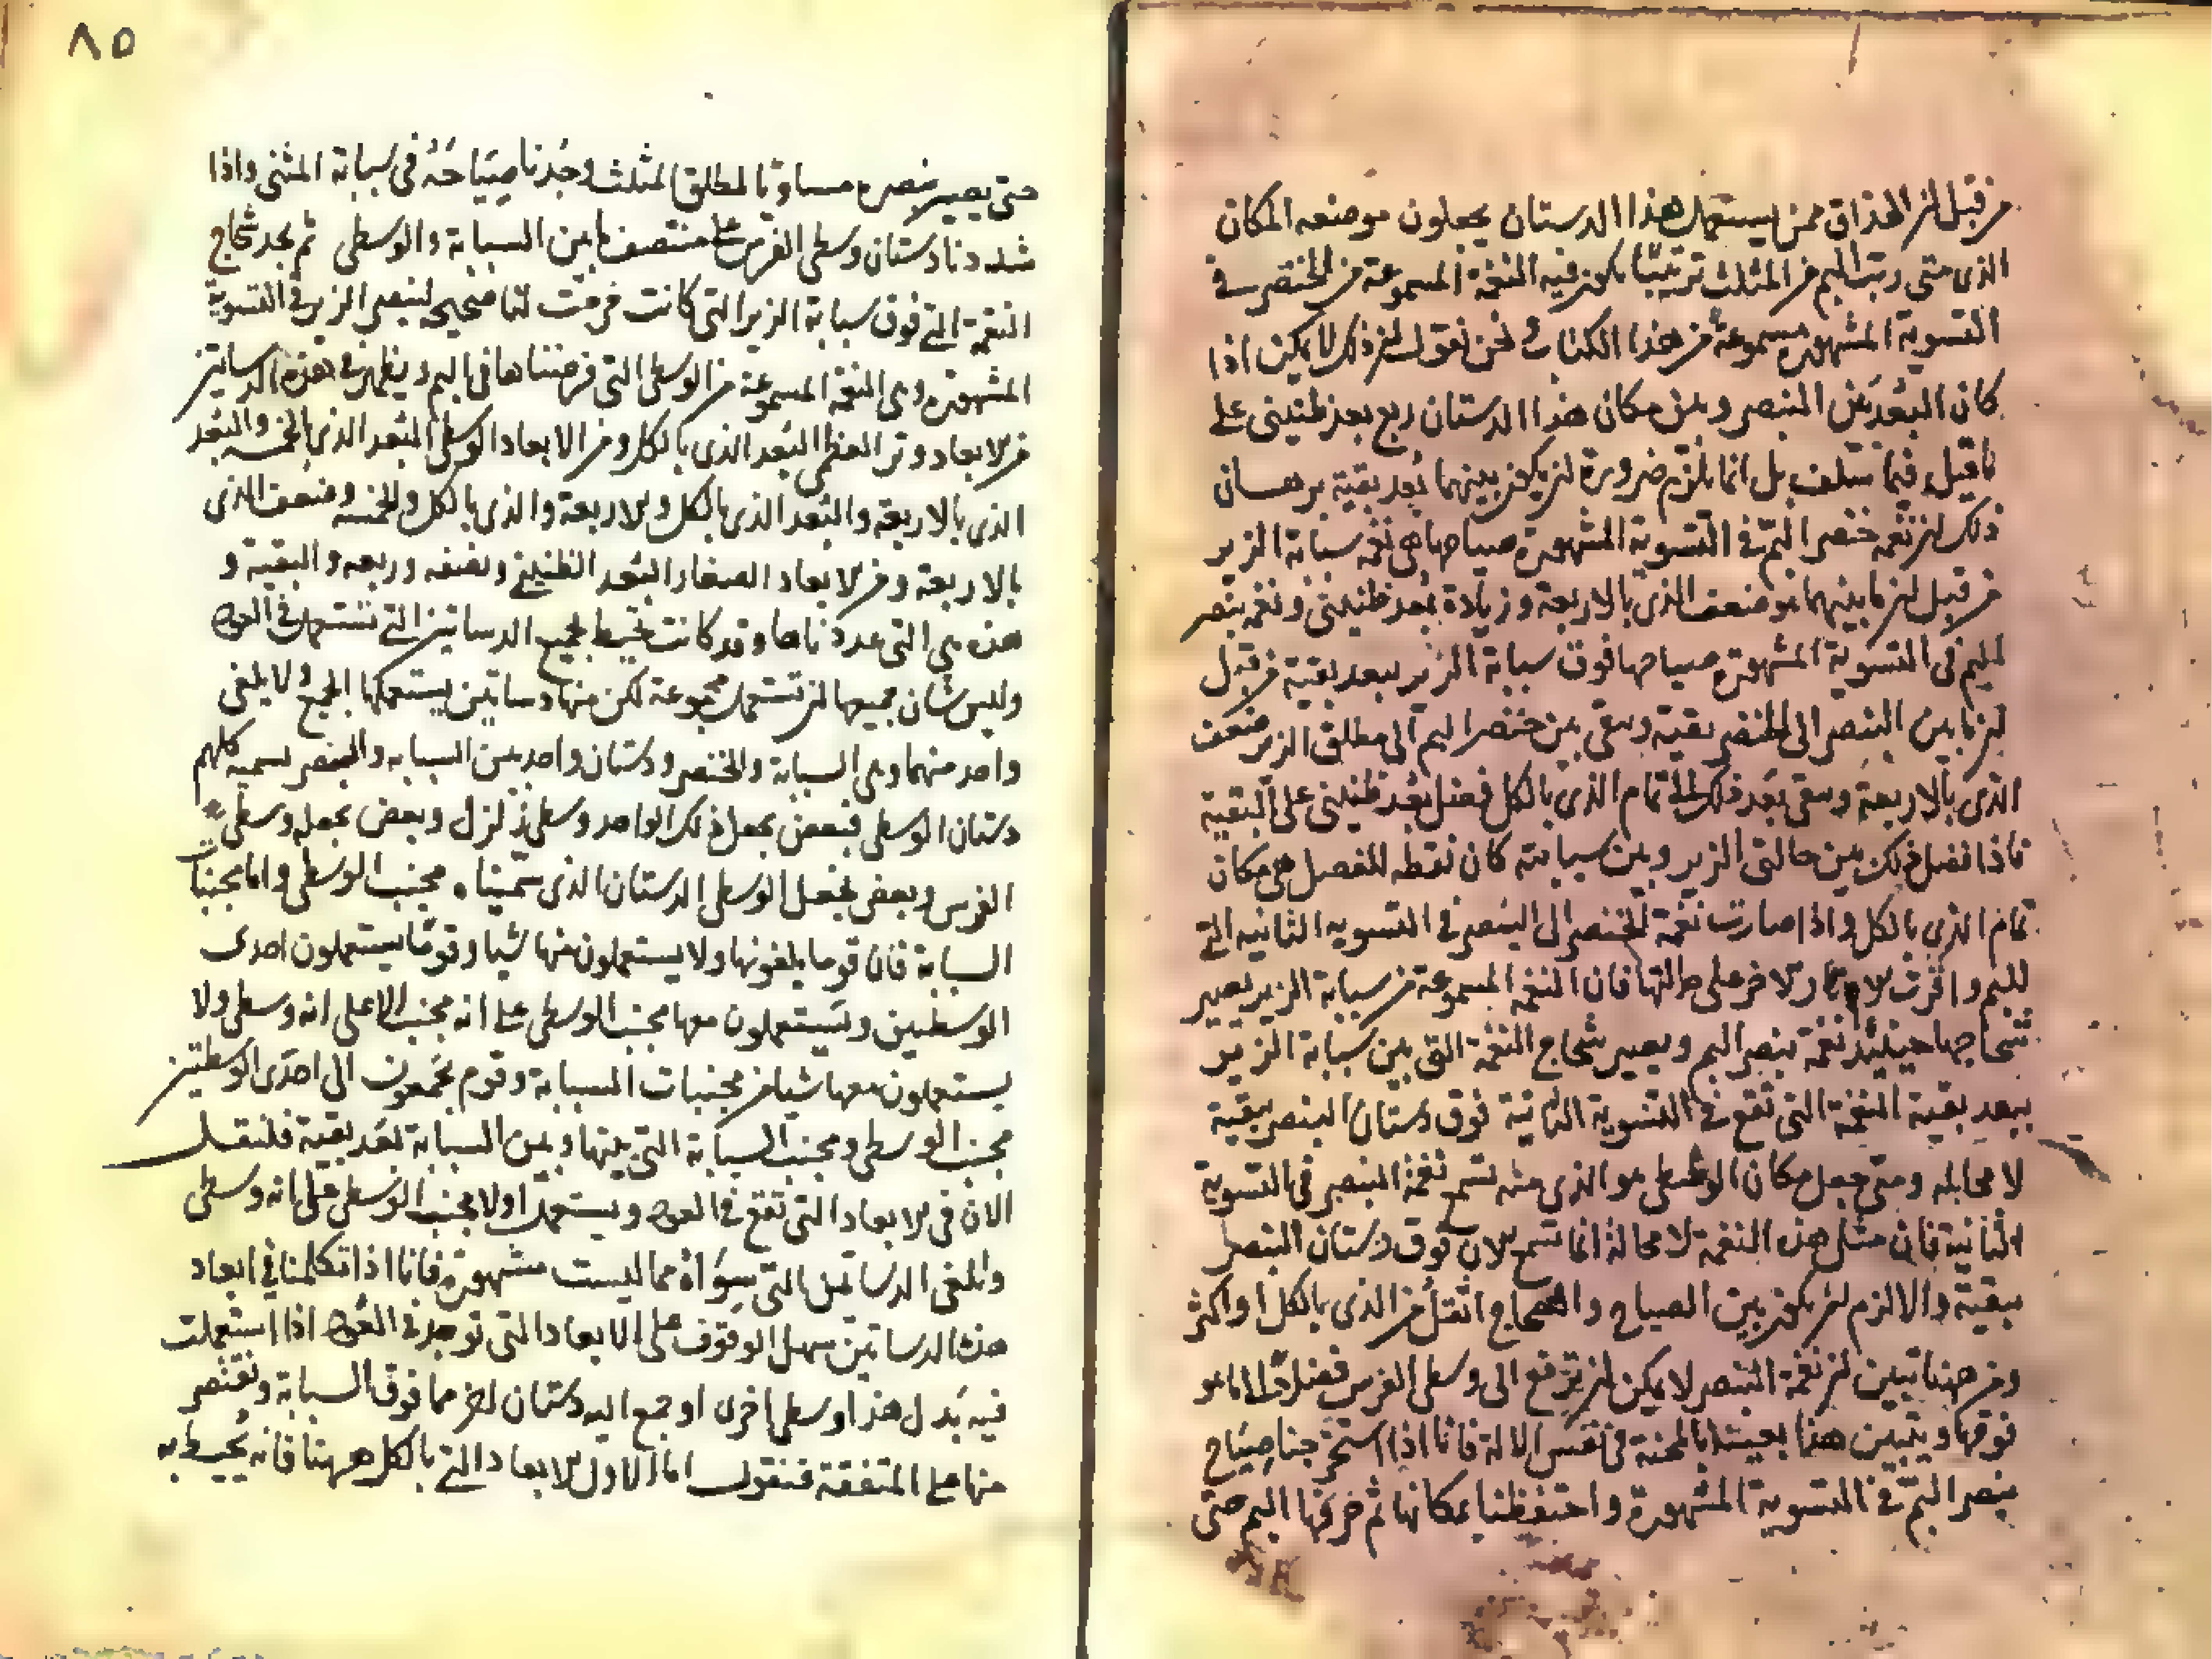 من قبل ان الحذاق ممن يستعمل هذا الدستان يجعلون موضعه المكان
الذى متى رتب البم من المثلث ترتيبا يكون فيه النغمة المسموعة من الخنصر فى
التسوية المشهورة مسموعة من هذا الكتاب ونحن نقول ان ذلك لا يمكن اذا
كان البعد بين البنصر وبين مكان هذا الدستان ربع بعد طنينى على
ما قيل فيما سلف بل انما يلزم ضرورة ان يكون بينهما بعد بقية برهان
ذلك ان نغمة خنصر البم فى التسوية المشهورة صياحها هى نغمة سبابة الزير
من قبل ان ما بينهما هو ضعف الذى بالاربعة وزيادة بعد طنينى ونغمة بنصر
البم فى التسوية المشهورة صياحها فوق سبابة الزير ببعد بقية من قبل
ان ما بين البنصر الى الخنصر بقية وبقى بين خنصر البم الى مطلق الزير ضعف
الذى بالاربعة وبقى بعد ذلك الى تمام الذى بالكل فضل بعد طنينى على البقية
فاذا فصل ذلك بين حالتى الزير وبين سبابته كان نقطة المفصل هى مكان
تمام الذى بالكل واذا صارت نغمة الخنصر الى البنصر فى التسوية الثانية التى
للبم واقرت الاوتار الاخر على حالتها فان النغمة المسموعة من سبابة الزير يصير
شحاجها حينئذ نغمة بنصر البم ويصير شحاج النغمة التى بين سبابة الزير
ببعد بقية النغمة التى تقع فى التسوية الثانية فوق دستان البنصر ببقية
لا محالة ومتى جعل مكان الوسطى هو الذى منه تسمع نغمة البنصر فى التسوية
الثانية فان مثل هذه النغمة لا محالة انما تسمع الان فوق دستان البنصر
ببقية والا لزم ان يكون بين الصياح والشحاج اثقل من الذى بالكل او اكثر
ومن ههنا تبين ان نغمة البنصر لا يمكن ان ترتفع الى وسطى الفرس فضلا الى ما هو
فوقها ويتبين هذا بعينه بالمحنة فى نفس الالة فانا اذا استخرجنا صياح
بنصر البم فى التسوية المشهورة واحتفظنا بمكانها ثم خرقنا البم حتى
٨٥
حتى يصير بنصره مساويا لمطلق المثلث وجدنا صياحه فى سبابة المثنى واذا
شددنا دستان وسطى الفرس على منتصف ما بين السبابة والوسطى ثم نجد شحاج
النغمة التى فوق سبابة الزير التى كانت خرجت لنا صحيحة لبنصر الزير فى التسوية
المشهورة وهى النغمة المسموعة من الوسطى التى فرضناها فى البم ويظهر فى هذه الدساتين
من الابعاد وتر العظمى البعد الذى بالكل ومن الابعاد الوسطى البعد الذى بالخمسة والبعد
الذى بالاربعة والبعد الذى بالكل والاربعة والذى بالكل والخمسة وضعف الذى
بالاربعة ومن الابعاد الصغار البعد الطنينى ونصفه وربعه والبقية و
هذه هى التى عددناها وقد كانت تحيط بجميع الدساتين التى تستعمل فى العود
وليس شان جميعها ان تستعمل مجموعة لكن منها دساتين يستعملها الجميع ولا يلغى
واحد منهما وهى السبابة والخنصر ودستان واحد بين السبابة والبنصر يسميه كلهم
دستان الوسطى فبعض يجعل ذلك الواحد وسطى زلزل وبعض يجعله وسطى
الفرس وبعض يجعل الوسطى الدستان الذى سميناه مجنب الوسطى واما مجنبات
السبابة فان قوما يلغونها ولا يستعملون منها شيا وقوما يستعملون احدى
الوسطيين ويستعملون معها مجنب الوسطى على انه مجنب لا على انه وسطى ولا
يستعملون معها شيا من مجنبات السبابة وقوم يجمعون الى احدى الوسطتين
مجنب الوسطى ومجنب السبابة التى بينها وبين السبابة بعد بقية فلنقل
الان فى الابعاد التى تقع فى العود ويستعمل اولا مجنب الوسطى على انه وسطى
والغى الدساتين التى سواه مما ليست مشهورة فانا اذا تكلمنا فى ابعاد
هذه الدساتين سهل الوقوف على الابعاد التى توجد فى العود اذا استعملت
فيه بدل هذا وسطى اخرى او جمع اليه دستان اخر مما فوق السبابة ونقتصر
منها على المتفقة فنقول اما الاول الابعاد التى بالكل ههنا فانه يحيط به